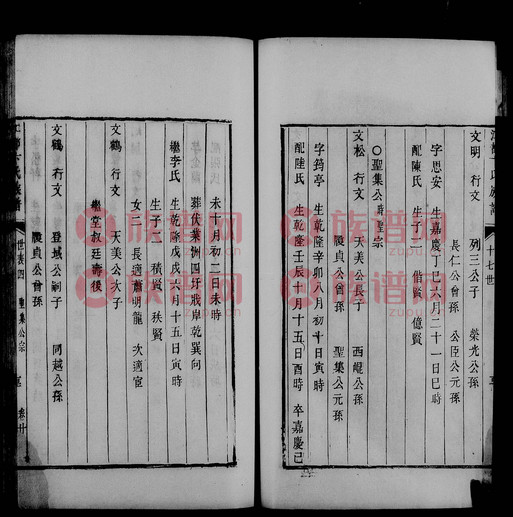 十七世
文明 行文 列三公子 榮光公孫
長仁公曾孫 公臣公元孫
字思安 生嘉慶丁巳六月二十一日巳時
配陳氏 生子二 偕賢 億賢
〇聖集公 宗
文松 行文 天美公長子 西崐公孫
陵貞公曾孫 聖集公元孫
字筠亭 生乾隆辛卯八月初十日寅時
配陸氏 生乾隆壬辰十月十五日酉時 卒嘉慶己
未十月初二日未時
葬伏業洲四圩戕岸乾巽向
繼李氏 生乾隆戊戌六月十五日寅時
生子二 積賢 秩賢
女二 長適蕭明龍 次適宦
文鶴 行文 天美公次子
繼堂叔廷壽後
文鶴 行文 登域公嗣子 同越公孫
陵貞公曾孫
氏族譜 世表四 聖集公宗 卷廿
族谱网
族谱网